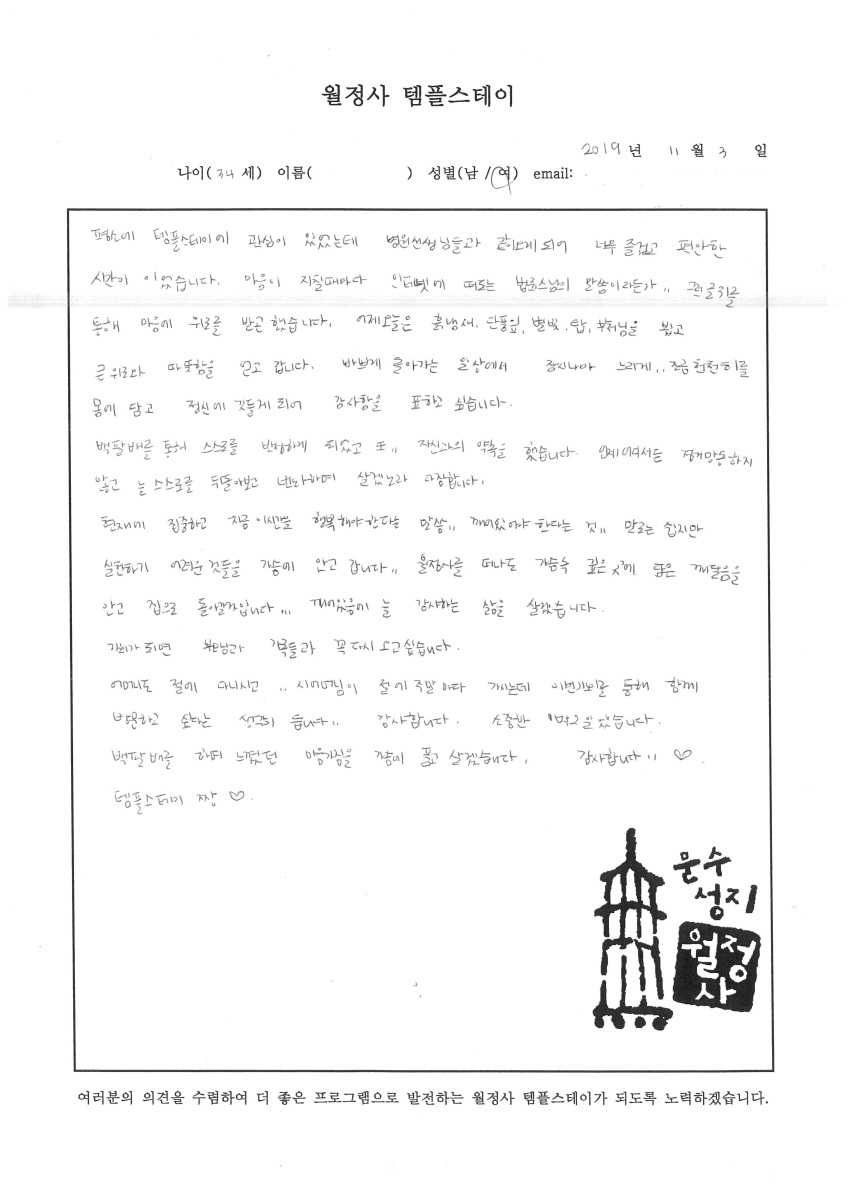 월정사 템플스테이
2019 년 11 월 3 일
나이( 34 세) 이름( ) 성별(남 / 여) email:
평소에 템플스테이에 관심이 있었는데 병원선생님들과 같이오게 되어 너무 즐겁고 편안한
시간이 이었습니다. 마음이 지칠때마다 인터넷에 떠도는 법륜스님의 말씀이라든가,, 글귀를
통해 마음에 위로를 받곤 했습니다. 어제오늘은 흙냄새, 단풍잎, 별빛, 탑, 부처님을 보고
큰 위로와 따뜻함을 얻고 갑니다. 바쁘게 돌아가는 일상에서 잠시나마 느리게,, 조금 천천히를
몸에 담고 정신에 깃들게 되어 감사함을 표하고 싶습니다.
백팔배를 통해 스스로를 반성하게 되었고 또,, 자신과의 약속을 했습니다. 경거망동하지
않고 늘 스스로를 뒤돌아보고 살겠노라 다짐합니다.
현재에 집중하고 지금 이시간을 행복해야한다는 말씀,, 깨어있어야 한다는 것,, 말로는 쉽지만
실천하기 어려운 것들을 가슴에 안고 갑니다,, 월정사를 떠나도 가슴속 깊은 곳에 담은 깨달음을
안고 집으로 돌아갈것입니다,,, 깨어있음에 늘 감사하는 삶을 살겠습니다.
기회가 되면 부모님과 가족들과 꼭 다시 오고싶습니다.
어머니도 절에 다니시고,, 시어머님이 절에 주말마다 가시는데 이번기회를 통해 함께
방문하고 싶다는 생각이 듭니다,, 감사합니다. 소중한 추억으로 있습니다.
백팔배를 하며 느꼈던 마음가짐을 품고 살겠습니다. 감사합니다,, ♡.
템플스테이 짱 ♡.
문수
성지
월정
사
여러분의 의견을 수렴하여 더 좋은 프로그램으로 발전하는 월정사 템플스테이가 되도록 노력하겠습니다.